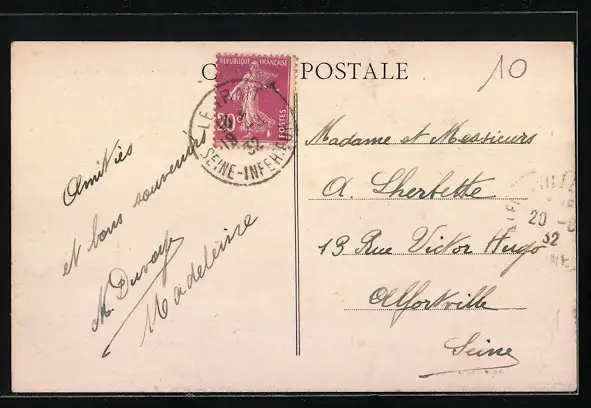 C POSTALE
10
REPUBLIQUE FRANÇAISE
20
POSTES
LE
32
SEINE-INFERRE
Amitiés
et bons souvenirs
M. Duvoye
Madeleine
Madame et Messieurs
A. Lherbette
13 Rue Victor Hugo
Alfortville
Seine
20 -8
32